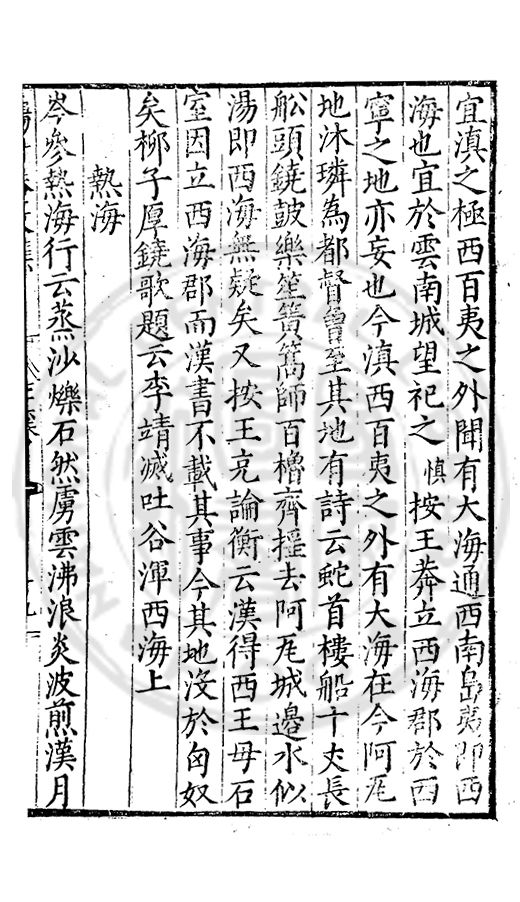 宜滇之極西百夷之外聞有大海通西南島夷即西
海也宜於雲南城望祀之慎按王莽立西海郡於西
寧之地亦妄也今滇西百夷之外有大海在今阿瓦
地沐璘為都督曾至其地有詩云蛇首樓船十丈長
舩頭鐃鼓樂笙簧篙師百櫓齊摇去阿瓦城邉水似
湯即西海無疑矣又按王充論衡云漢得西王母石
室因立西海郡而漢書不載其事今其地沒於匈奴
矣柳子厚鐃歌題云李靖滅吐谷渾西海上
熱海
岑參熱海行云蒸沙爍石然虜雲沸浪炎波煎漢月